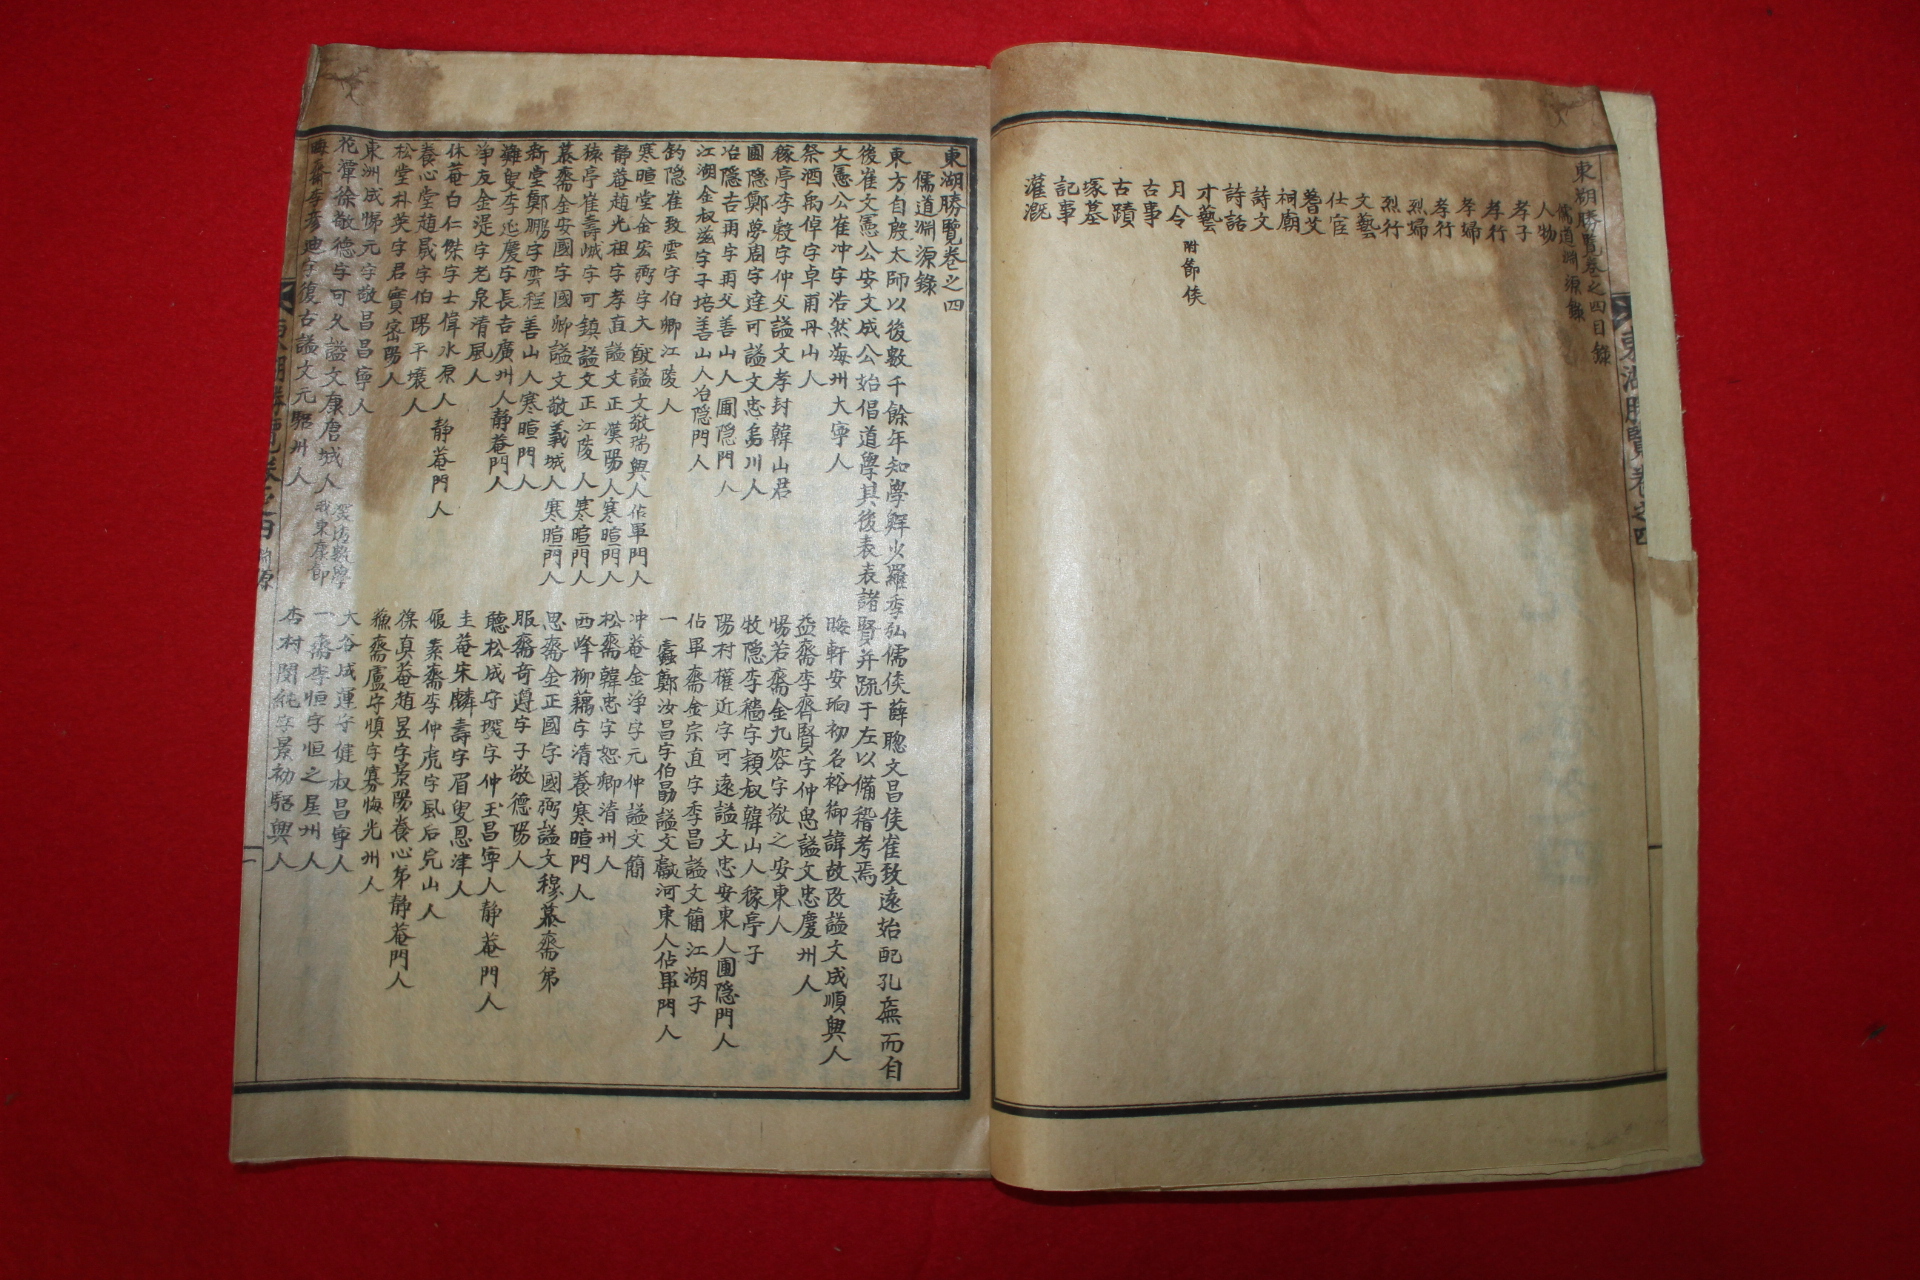 東湖勝覽卷之四目錄
儒道淵源錄
人物
孝子
孝行
孝婦
孝行
烈婦
烈行
文藝
仕宦
耆艾
祠廟
詩文
詩話
才藝
月令 附節侯
古事
古蹟
塚墓
記事
灌漑
東湖勝覽卷之四
東湖勝覽卷之四
儒道淵源錄
東方自殷太師以後數千餘年知學鮮少羅季弘儒侯薛聰文昌侯崔致遠始配孔廡而自
後崔文憲公安文成公始倡道學其後表表諸賢并疏于左以備稽考焉
文憲公崔冲字浩然海州大寧人
晦軒安珦初名裕御諱故改諡文成順興人
祭酒禹倬字卓甫丹山人
益齋李齊賢字仲思諡文忠慶州人
稼亭李穀字仲父諡文孝封韓山君
惕若齋金九容字敬之安東人
圃隱鄭夢周字達可諡文忠烏川人
牧隱李穡字穎叔韓山人稼亭子
冶隱吉再字再父善山人圃隱門人
陽村權近字可遠諡文忠安東人圃隱門人
江湖金叔滋字子培善山人冶隱門人
佔畢齋金宗直字季昌諡文簡江湖子
釣隱崔致雲字伯卿江陵人
一蠹鄭汝昌字伯勗諡文獻河東人佔畢門人
寒暄堂金宏弼字大猷諡文敬瑞興人佔畢門人
冲菴金淨字元仲諡文簡
靜菴趙光祖字孝直諡文正漢陽人寒暄門人
松齋韓忠字恕卿清州人
猿亭崔壽峸字可鎮諡文正江陵人寒暄門人
西峰柳藕字清養寒暄門人
慕齋金安國字國卿諡文敬義城人寒暄門人
思齋金正國字國弼諡文穆慕齋弟
新堂鄭鵬字雲程善山人寒暄門人
服齋奇遵字子敬德陽人
灘叟李延慶字長吉廣州人靜菴門人
聽松成守琛字仲玉昌寧人靜菴門人
淨友金湜字老泉清風人
圭菴宋麟壽字眉叟恩津人
休菴白仁傑字士偉水原人靜菴門人
素齋李仲虎字風后完山人
養心堂趙晟字伯陽平壤人
葆真菴趙昱字景陽養心弟靜菴門人
松堂朴英字君實密陽人
蘇齋盧守愼字寡悔光州人
東洲成悌元字敬昌昌寧人
大谷成運字健叔昌寧人
花潭徐敬德字可久諡文康唐城人
一齋李恒字恒之星州人
晦齋李彥迪字復古諡文元驪州人
杏村閔純字景初驪興人